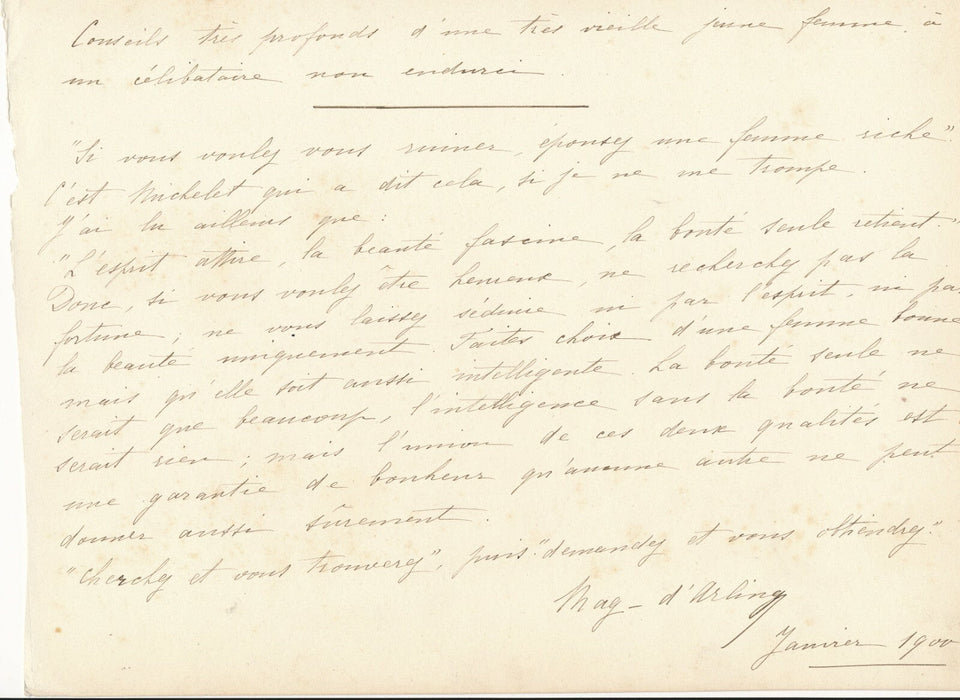 Conseils très profonds d'une très vieille jeune femme à
un célibataire non endurci.
"Si vous voulez vous ruiner, épousez une femme riche".
C'est Michelet qui a dit cela, si je ne me trompe.
J'ai lu ailleurs que :
"L'esprit attire, la beauté fascine, la bonté seule retient."
Donc, si vous voulez être heureux, ne recherchez pas la
fortune ; ne vous laissez séduire ni par l'esprit, ni par
la beauté uniquement. Faites choix d'une femme bonne
mais qu'elle soit aussi intelligente. La bonté seule ne
serait que beaucoup, l'intelligence sans la bonté ne
serait rien ; mais l'union de ces deux qualités est
une garantie de bonheur qu'aucune autre ne peut
donner aussi sûrement.
"Cherchez et vous trouverez", puis "demandez et vous obtiendrez."
Mag - d'Arling
Janvier 1900